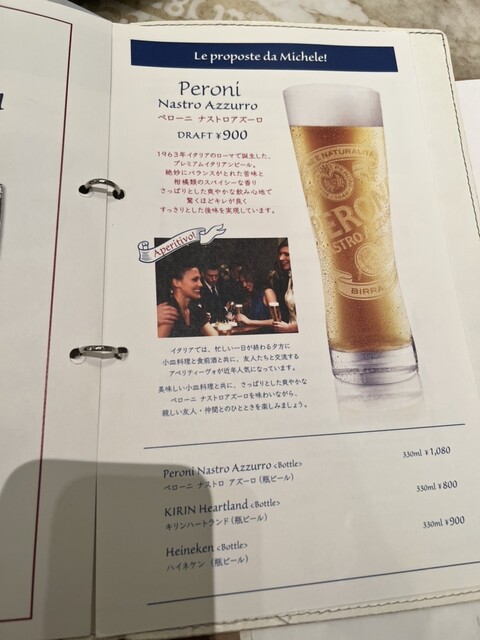 Le proposte da Michele!
Peroni
Nastro Azzurro
ペローニ ナストロアズーロ
DRAFT ¥900
1963年イタリアのローマで誕生した、
プレミアムイタリアンビール。
絶妙にバランスがとれた苦味と
柑橘類のスパイシーな香り
さっぱりとした爽やかな飲み心地で
驚くほどキレが良く
すっきりとした後味を実現しています。
Aperitivo!
イタリアでは、忙しい一日が終わる夕方に
小皿料理と食前酒と共に、友人たちと交流する
アペリティーヴォが近年人気になっています。
美味しい小皿料理と共に、さっぱりとした爽やかな
ペローニ ナストロアズーロを味わいながら、
親しい友人・仲間とのひとときを楽しみましょう。
NATURALITÀ
BIRRA
Peroni Nastro Azzurro <Bottle> 330ml ¥1,080
ペローニ ナストロ アズーロ (瓶ビール)
KIRIN Heartland <Bottle> 330ml ¥800
キリンハートランド (瓶ビール)
Heineken <Bottle> 330ml ¥900
ハイネケン (瓶ビール)